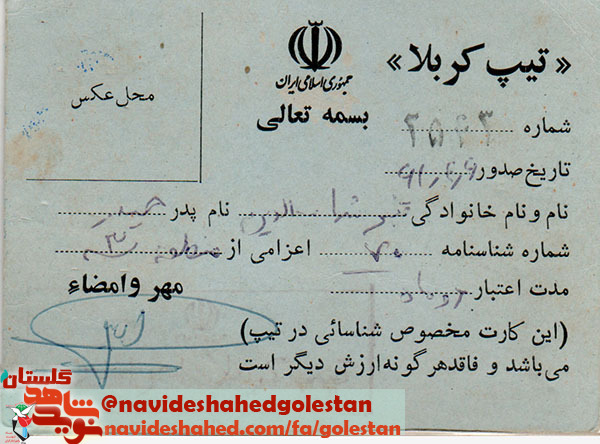 « تیپ کربلا »
جمهوری اسلامی ایران
بسمه تعالی
محل عکس
شماره ۲۵۴۳
تاریخ صدور
نام و نام خانوادگی نام پدر
شماره شناسنامه اعزامی از منطقه ۳
مدت اعتبار دو ماه
مهر وامضاء
(این کارت مخصوص شناسائی در تیپ)
می‌باشد و فاقدهر گونه ارزش دیگر است
نوید شاهد گلستان
@navideshahedgolestan
navideshahed.com/fa/golestan